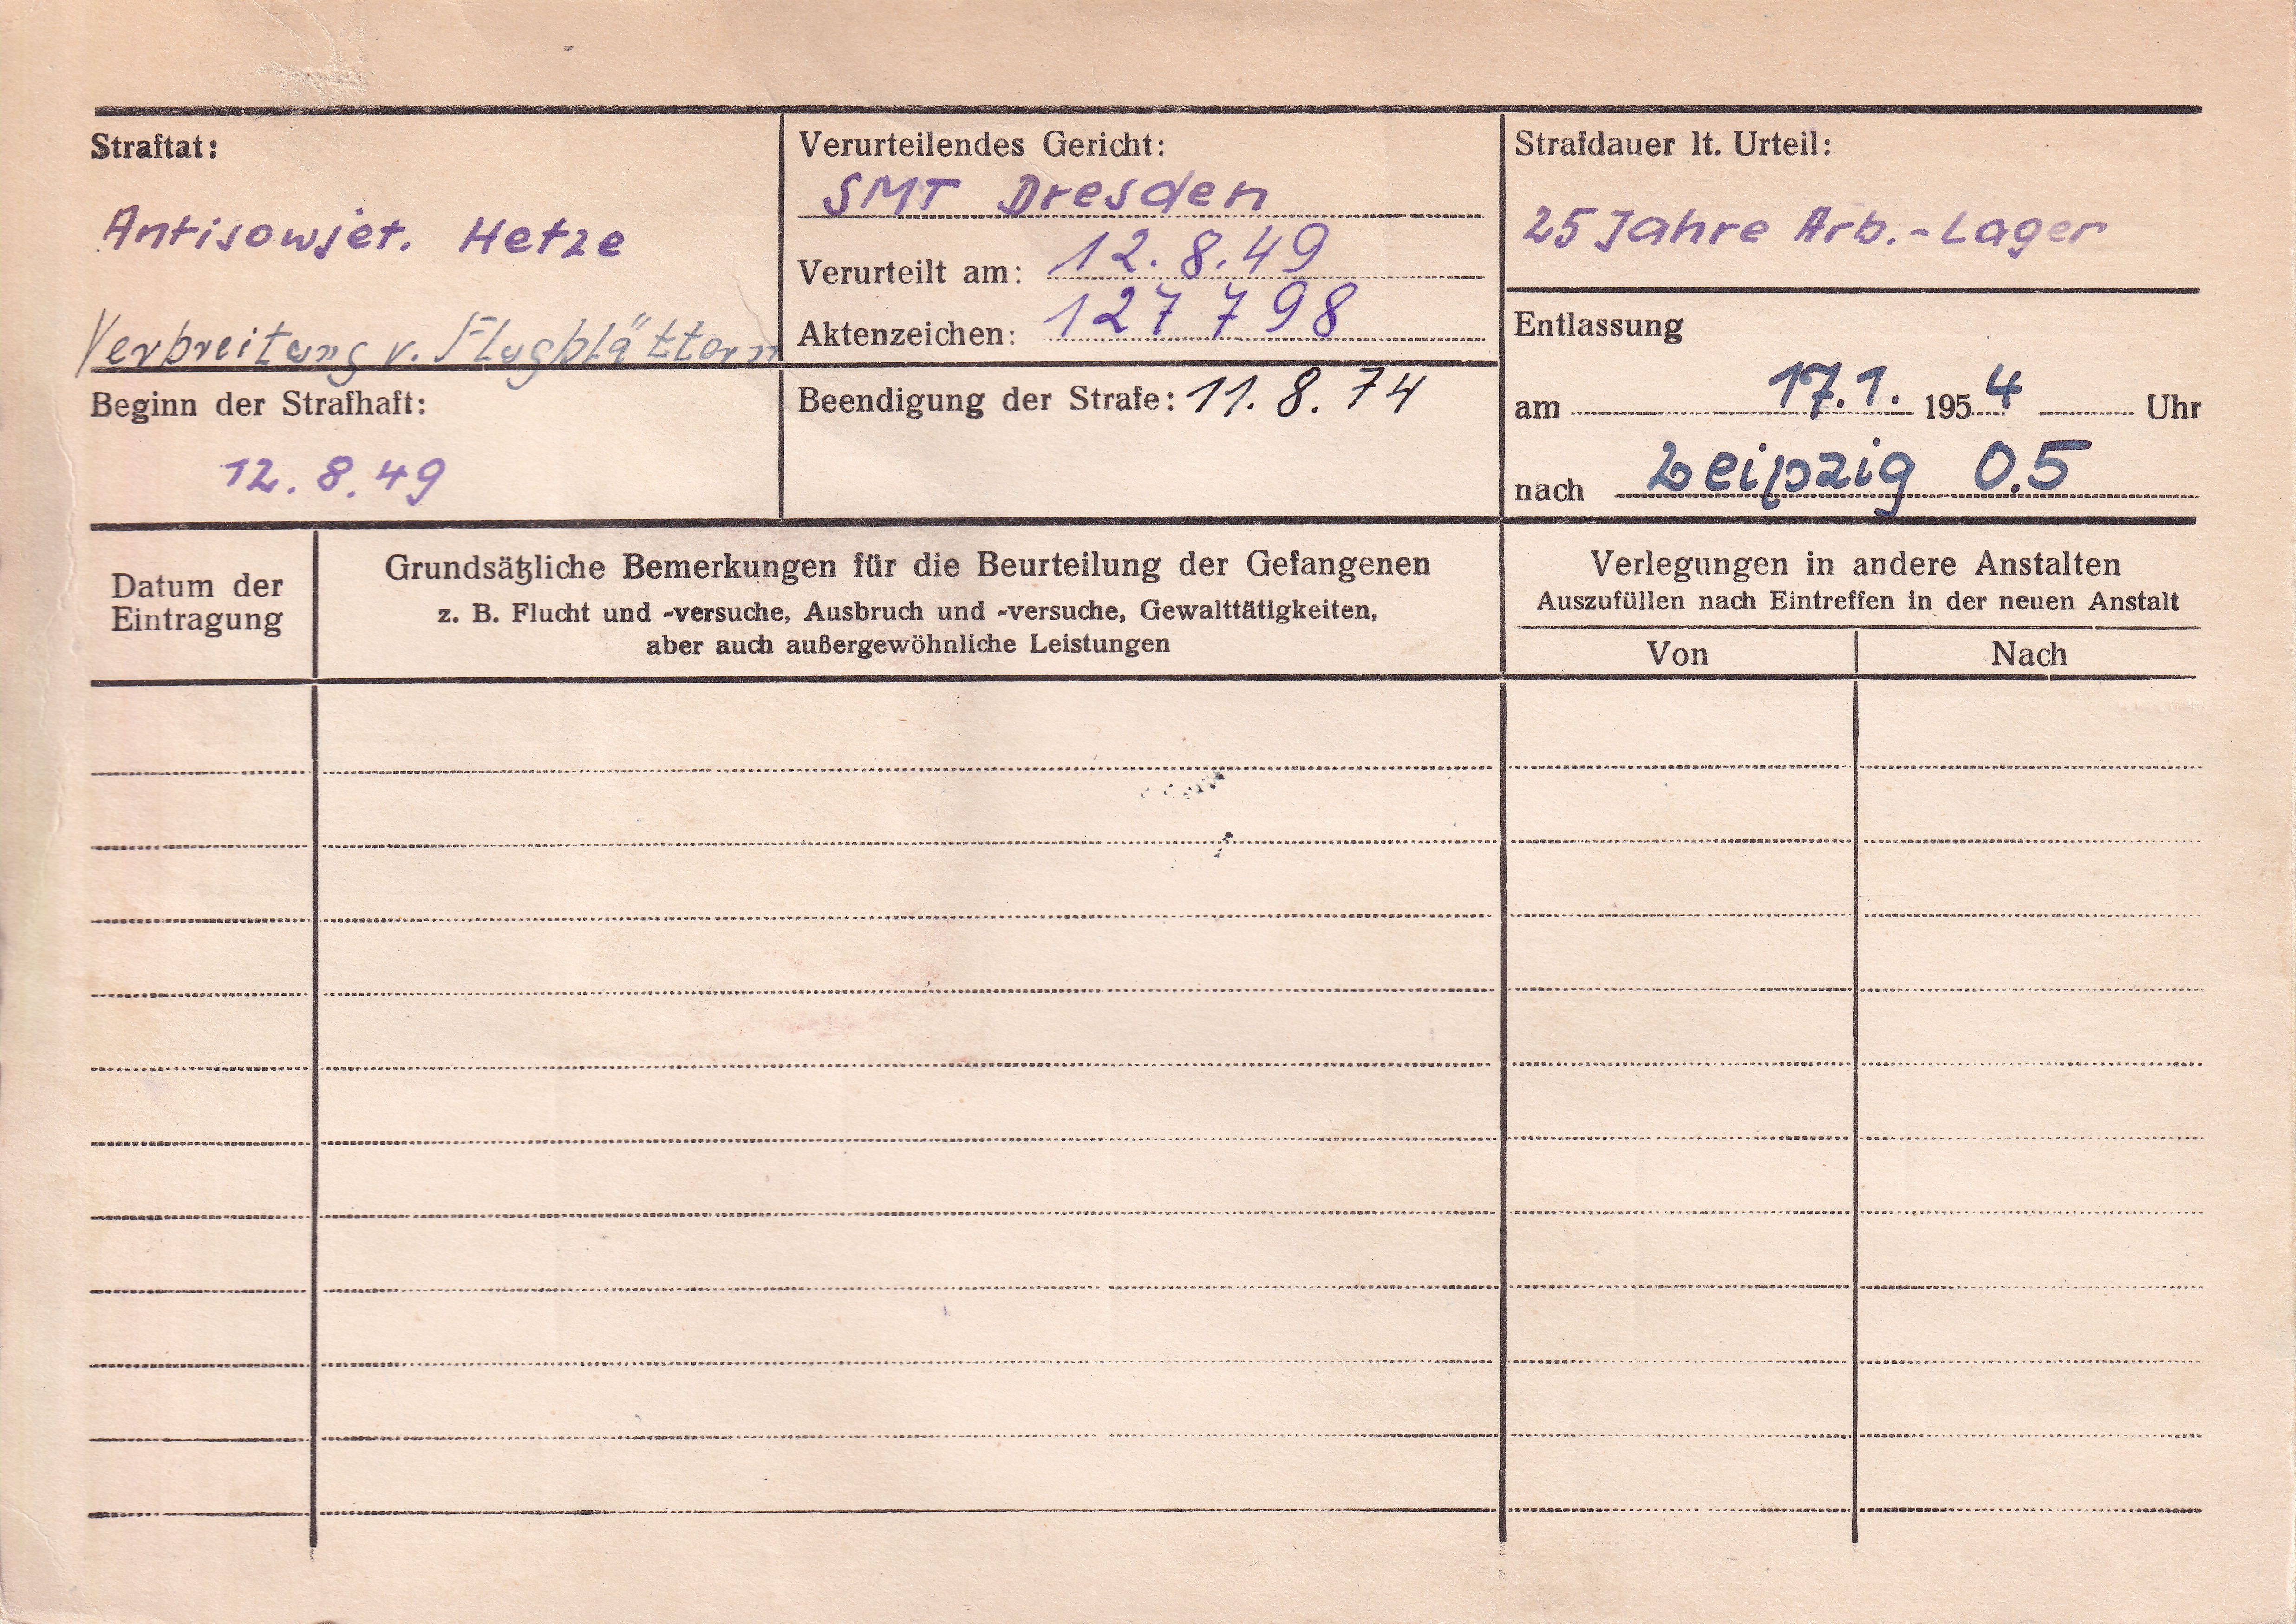 Straftat:
Antisowjet. Hetze
Verbreitung v. Flugblättern
Verurteilendes Gericht:
SMT Dresden
Verurteilt am: 12.8.49
Aktenzeichen: 127 798
Strafdauer lt. Urteil:
25 Jahre Arb.-Lager
Beginn der Strafhaft:
12.8.49
Beendigung der Strafe: 11.8.74
Entlassung
am 17.1. 1954 Uhr
nach Leipzig O.5
Datum der
Eintragung
Grundsätzliche Bemerkungen für die Beurteilung der Gefangenen
z. B. Flucht und -versuche, Ausbruch und -versuche, Gewalttätigkeiten,
aber auch außergewöhnliche Leistungen
Verlegungen in andere Anstalten
Auszufüllen nach Eintreffen in der neuen Anstalt
Von Nach